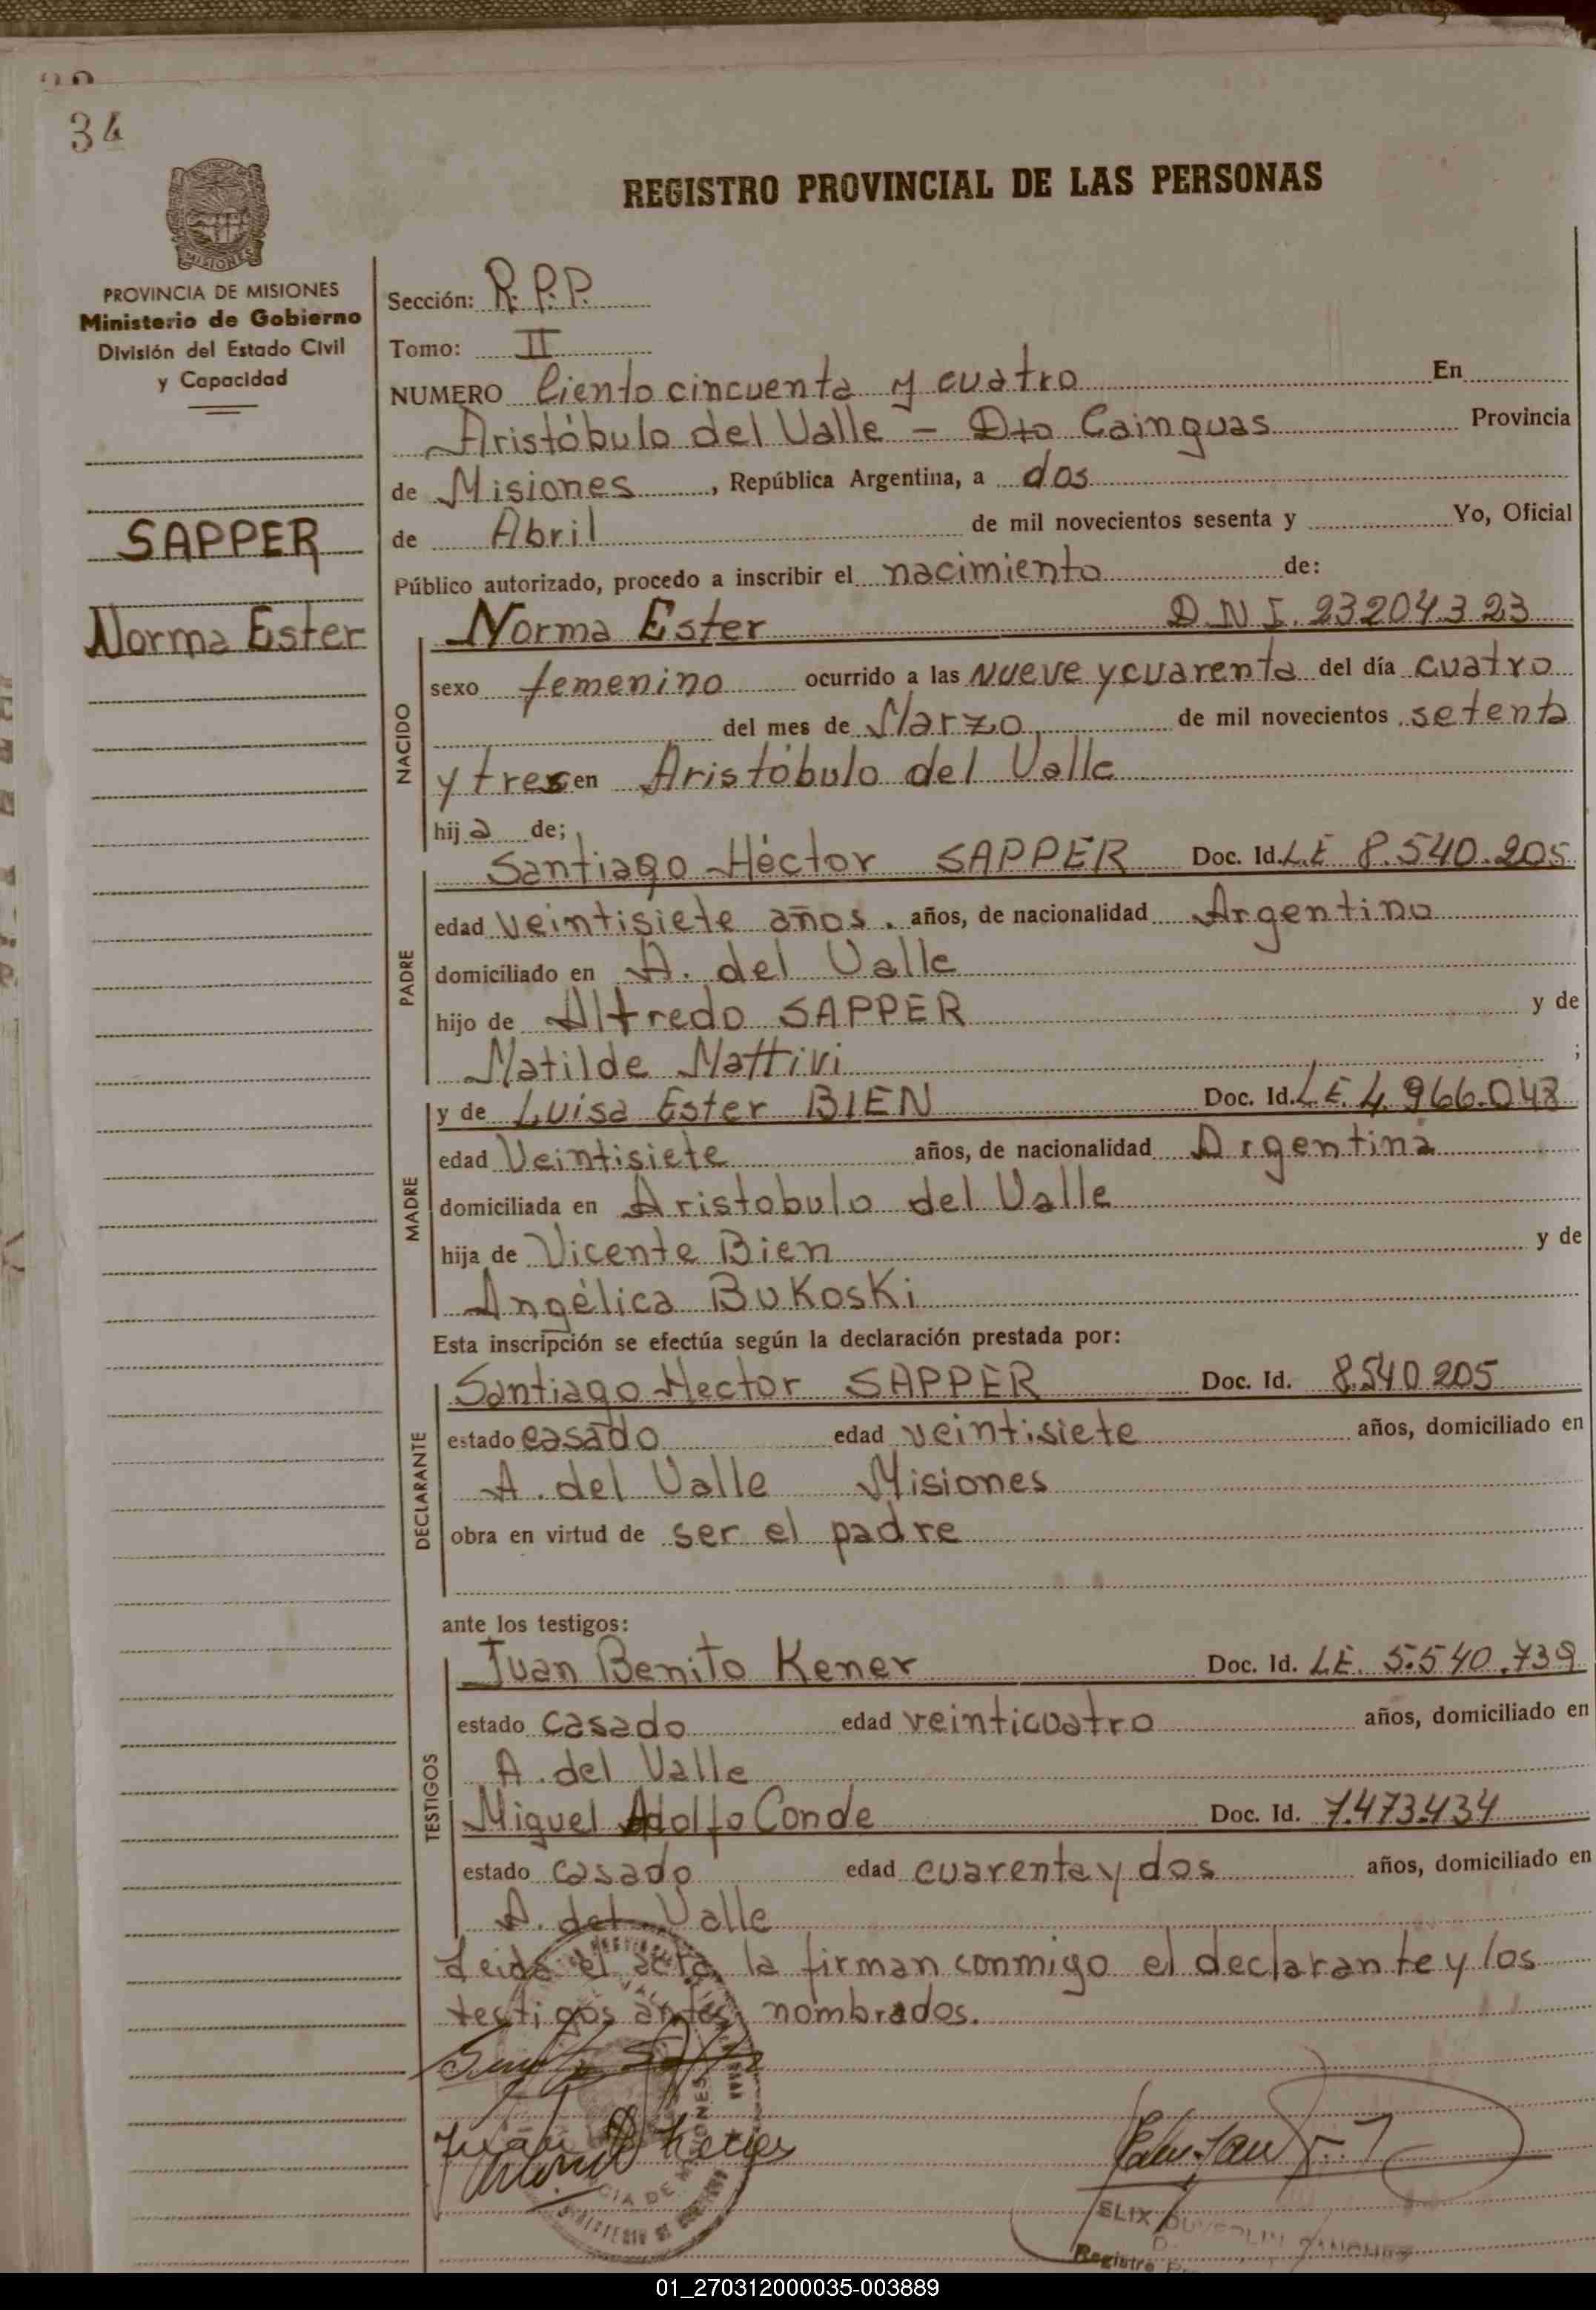 34
REGISTRO PROVINCIAL DE LAS PERSONAS
MISIONES
PROVINCIA DE MISIONES
Ministerio de Gobierno
División del Estado Civil
y Capacidad
SAPPER
Norma Ester
Sección: R.P.P.
Tomo: II
NUMERO Ciento cincuenta y cuatro En
Aristóbulo del Valle - Dto Cainguas Provincia
de Misiones, República Argentina, a dos
de Abril de mil novecientos sesenta y Yo, Oficial
Público autorizado, procedo a inscribir el nacimiento de:
Norma Ester D.N.I. 23204323
NACIDO
sexo femenino ocurrido a las Nueve y cuarenta del día cuatro
del mes de Marzo de mil novecientos setenta
y tres en Aristóbulo del Valle
hija de;
Santiago Héctor SAPPER Doc. Id. L.E 8.540.205
PADRE
edad veintisiete años. años, de nacionalidad Argentino
domiciliado en A. del Valle
hijo de Alfredo SAPPER y de
Matilde Mattivi ;
y de Luisa Ester BIEN Doc. Id. L.E. 4.966.048
MADRE
edad Veintisiete años, de nacionalidad Argentina
domiciliada en Aristobulo del Valle
hija de Vicente Bien y de
Angélica BuKosKi
Esta inscripción se efectúa según la declaración prestada por:
Santiago Hector SAPPER Doc. Id. 8.540 205
DECLARANTE
estado casado edad veintisiete años, domiciliado en
A. del Valle Misiones
obra en virtud de ser el padre
ante los testigos:
Juan Benito Kener Doc. Id. L.E. 5.540.739
TESTIGOS
estado casado edad veinticuatro años, domiciliado en
A. del Valle
Miguel Adolfo Conde Doc. Id. 7.473.434
estado casado edad cuarenta y dos años, domiciliado en
A. del Valle
Leida el acta, la firman conmigo el declarante y los
testigos antes nombrados.
Registro
01_270312000035-003889